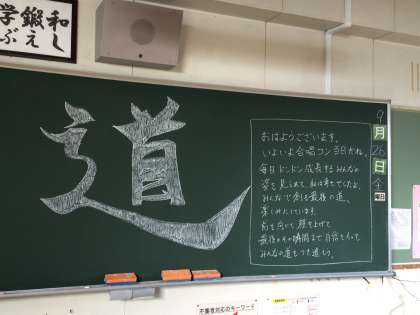 和し
鍛え
学ぶ
道
9
月
26
日
金
曜日
おはようございます。
いよいよ合唱コン当日かね。
毎日ドンドン成長するみんなの
姿を見られて、私は幸せでしたよ。
みんなで創る最後の道、
楽しみにしています。
前を向いて 顔を上げて
最後のその瞬間まで自信をもって、
みんなの道をつき進もう。
不審者対応のキーワード